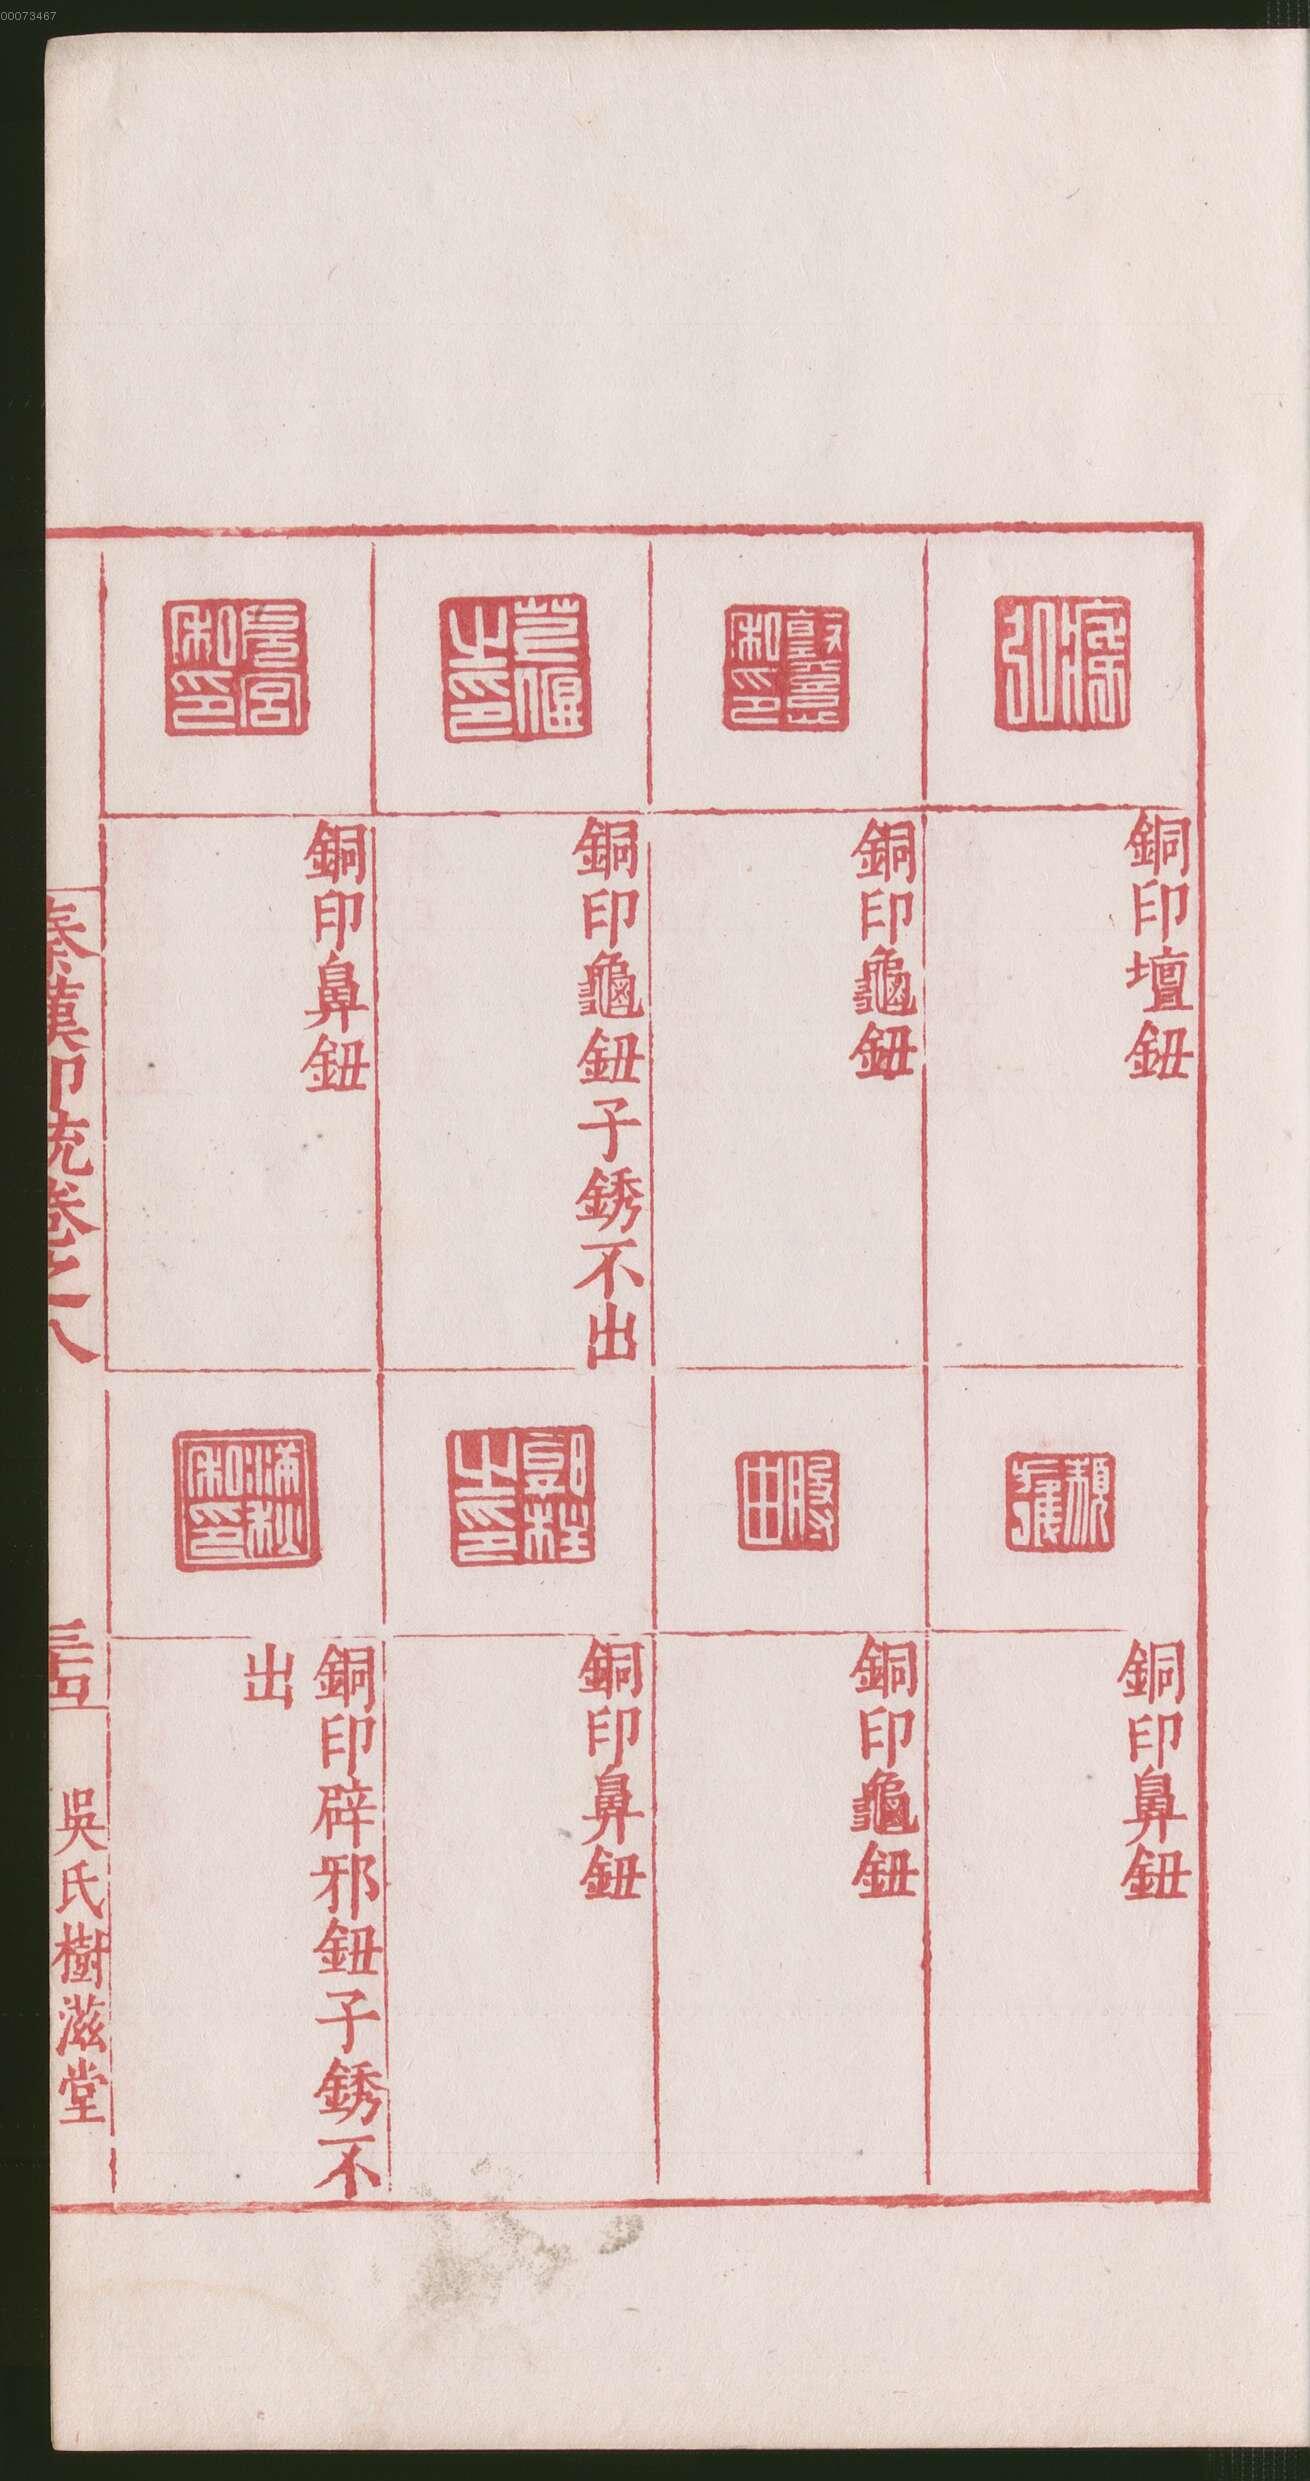 00073467
銅印壇鈕
銅印鼻鈕
銅印龜鈕
銅印龜鈕
之印
銅印龜鈕子銹不出
郭程之印
銅印鼻鈕
私印
銅印鼻鈕
私印
銅印辟邪鈕子銹不
出
秦漢印統卷之八
吳氏樹滋堂